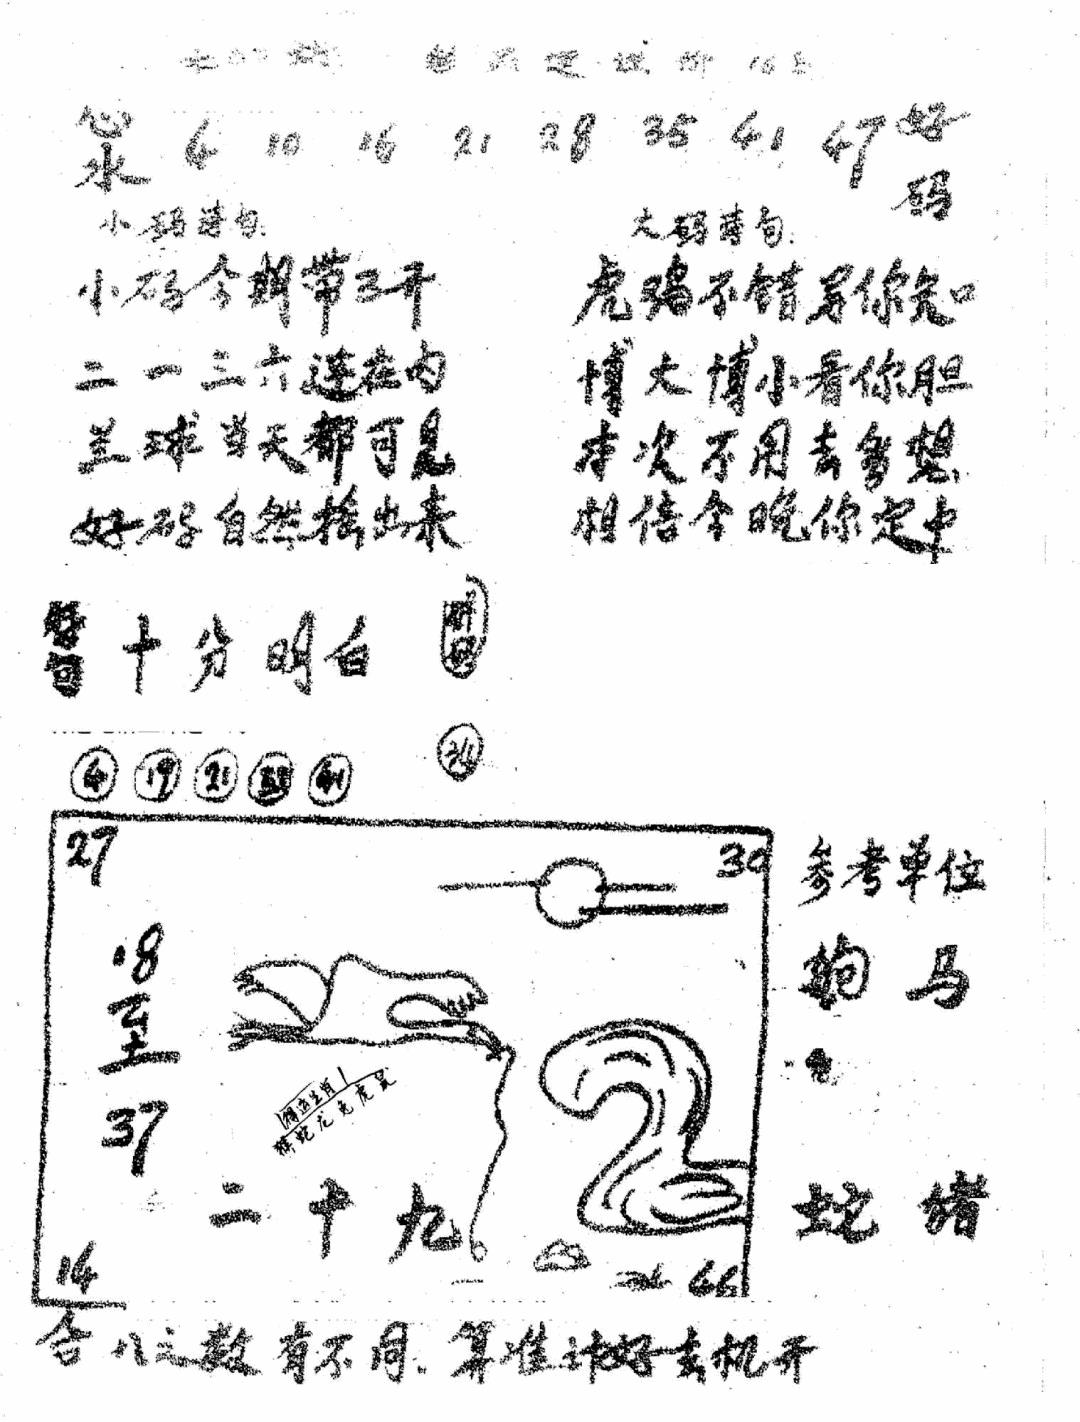 心水 4 10 16 21 28 35 41 47 好码
小码诗句: 大码诗句:
小码今期带3开
二一三六连在内
兰球当天都可见
好码自然拾出来
虎鸡不错另你知
博大博小看你胆
本次不用去多想
相信今晚你定中
十分明白
4 19 21 33 41
27
30
18
至
37
精选生肖
猴蛇龙兔虎鼠
二十九
14
46
参考单位
狗 马
蛇 猪
合八之数有不同.算准计好去机开